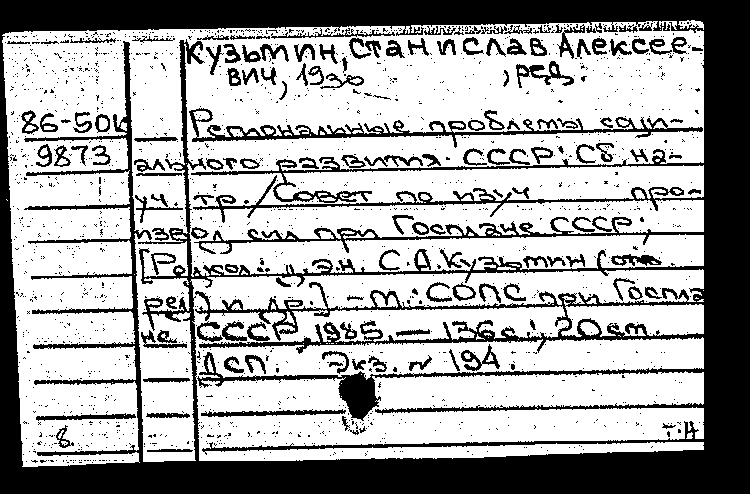 Кузьмин, Станислав Алексее-
вич, 1930 , ред.
86-50к Региональные проблемы соци-
9873 ального развития СССР: Сб. на-
уч. тр. / Совет по изуч. про-
извод. сил при Госплане СССР;
[Редкол.: д.э.н. С.А. Кузьмин (отв.
ред.) и др.] - М.: СОПС при Госпла-
не СССР, 1985. — 136 с.; 20 см.
ДСП. Экз. № 194.
8 т.н